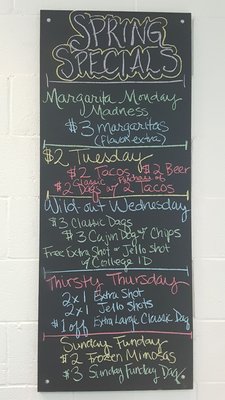 SPRING
SPECIALS
Margarita Monday
Madness
$3 margaritas
(flavor extra)
$2 Tuesday
$2 Tacos $2 Beer
$2 Classic Dags w/ Purchase of 2 Tacos
Wild-out Wednesday
$3 Classic Dags
$3 Cajun Dag & Chips
Free Extra Shot or Jello Shot
w/ College ID
Thirsty Thursday
2x1 Extra Shot
2x1 Jello Shots
$1 off Extra Large Classic Dag
Sunday Funday
$2 Frozen Mimosas
$3 Sunday Funday Dag